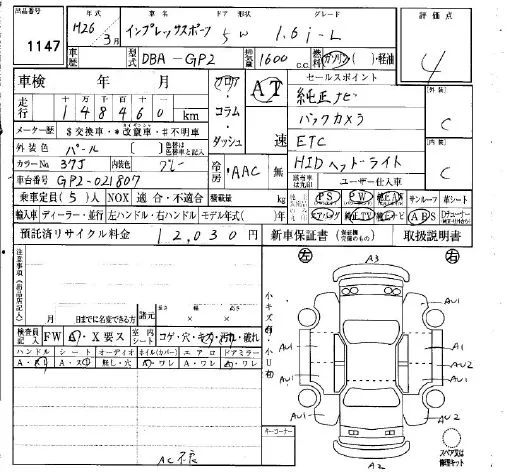 出品番号 1147
年式 H26年 3月
車名 インプレッサスポーツ
ドア 形状 5W
グレード 1.6i-L
評価点 4
車歴
型式 DBA-GP2
排気量 1600 c.c.
燃料 ガソリン ( )・軽油
車検 年 月
フロア・コラム・ダッシュ
AT
速
セールスポイント
純正ナビ
バックカメラ
ETC
HIDヘッドライト
外装 C
内装 C
走行 十万千百十
148460 km
メーター歴 $交換車・*改竄車・#不明車
外装色 パール
カラーNo 37J
内装色 グレー
冷房 AAC 無
車台番号 GP2-021807
ユーザー仕入車
乗車定員 (5)人 NOX 適合・不適合
積載量 kg
PS PW
サンルーフ 革シート
輸入車 ディーラー・並行 左ハンドル・右ハンドル モデル年式( )年
ABS
預託済リサイクル料金 12,030円
新車保証書
取扱説明書
注意事項(出品店記入)
月 日までに名変できる方
諸元 長さ 幅 高さ
小キズ有 小U有
検査員記入 FW A・X要ス
室内シート コゲ・穴・キズ・汚れ・破れ
ハンドル シート オーディオ ホイル(カバー) エアロ ドアミラー
A・ス A・ス 無し・穴 A・ワレ A・ワレ A・ワレ
AC不良
キーコーナー
左 右
A3
AU1
AU1
A1
AU2
AU1
AU2
AU1
AU2
A2
スペア又は修理キット